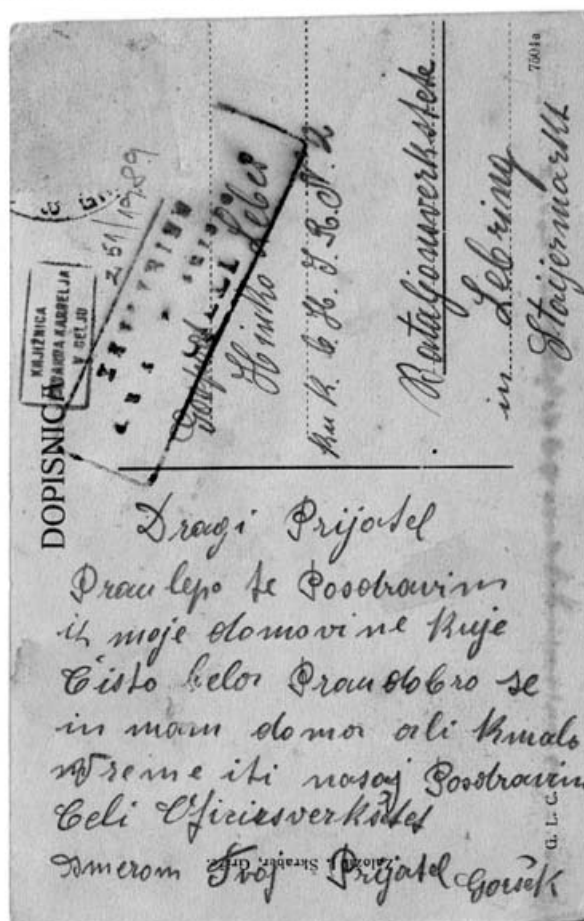 DOPISNICA
KNJIŽNICA
EDVARDA KARDELJA
V CELJU
251/1989
Hinko Leber
k u k
Bataljonsverkstete
in Lebring
Staijermarkt
7504a
Dragi Prijatel
Prav lepo te Posdravim
moje domovine kuje
Čisto belo Prav dobro se
in mam doma ali kmalo
vreme iti nasaj Posdravim
Celi
Smerom Tvoj Prijatel Goršek
Založil I. Škraber, Gr
G. L. C.